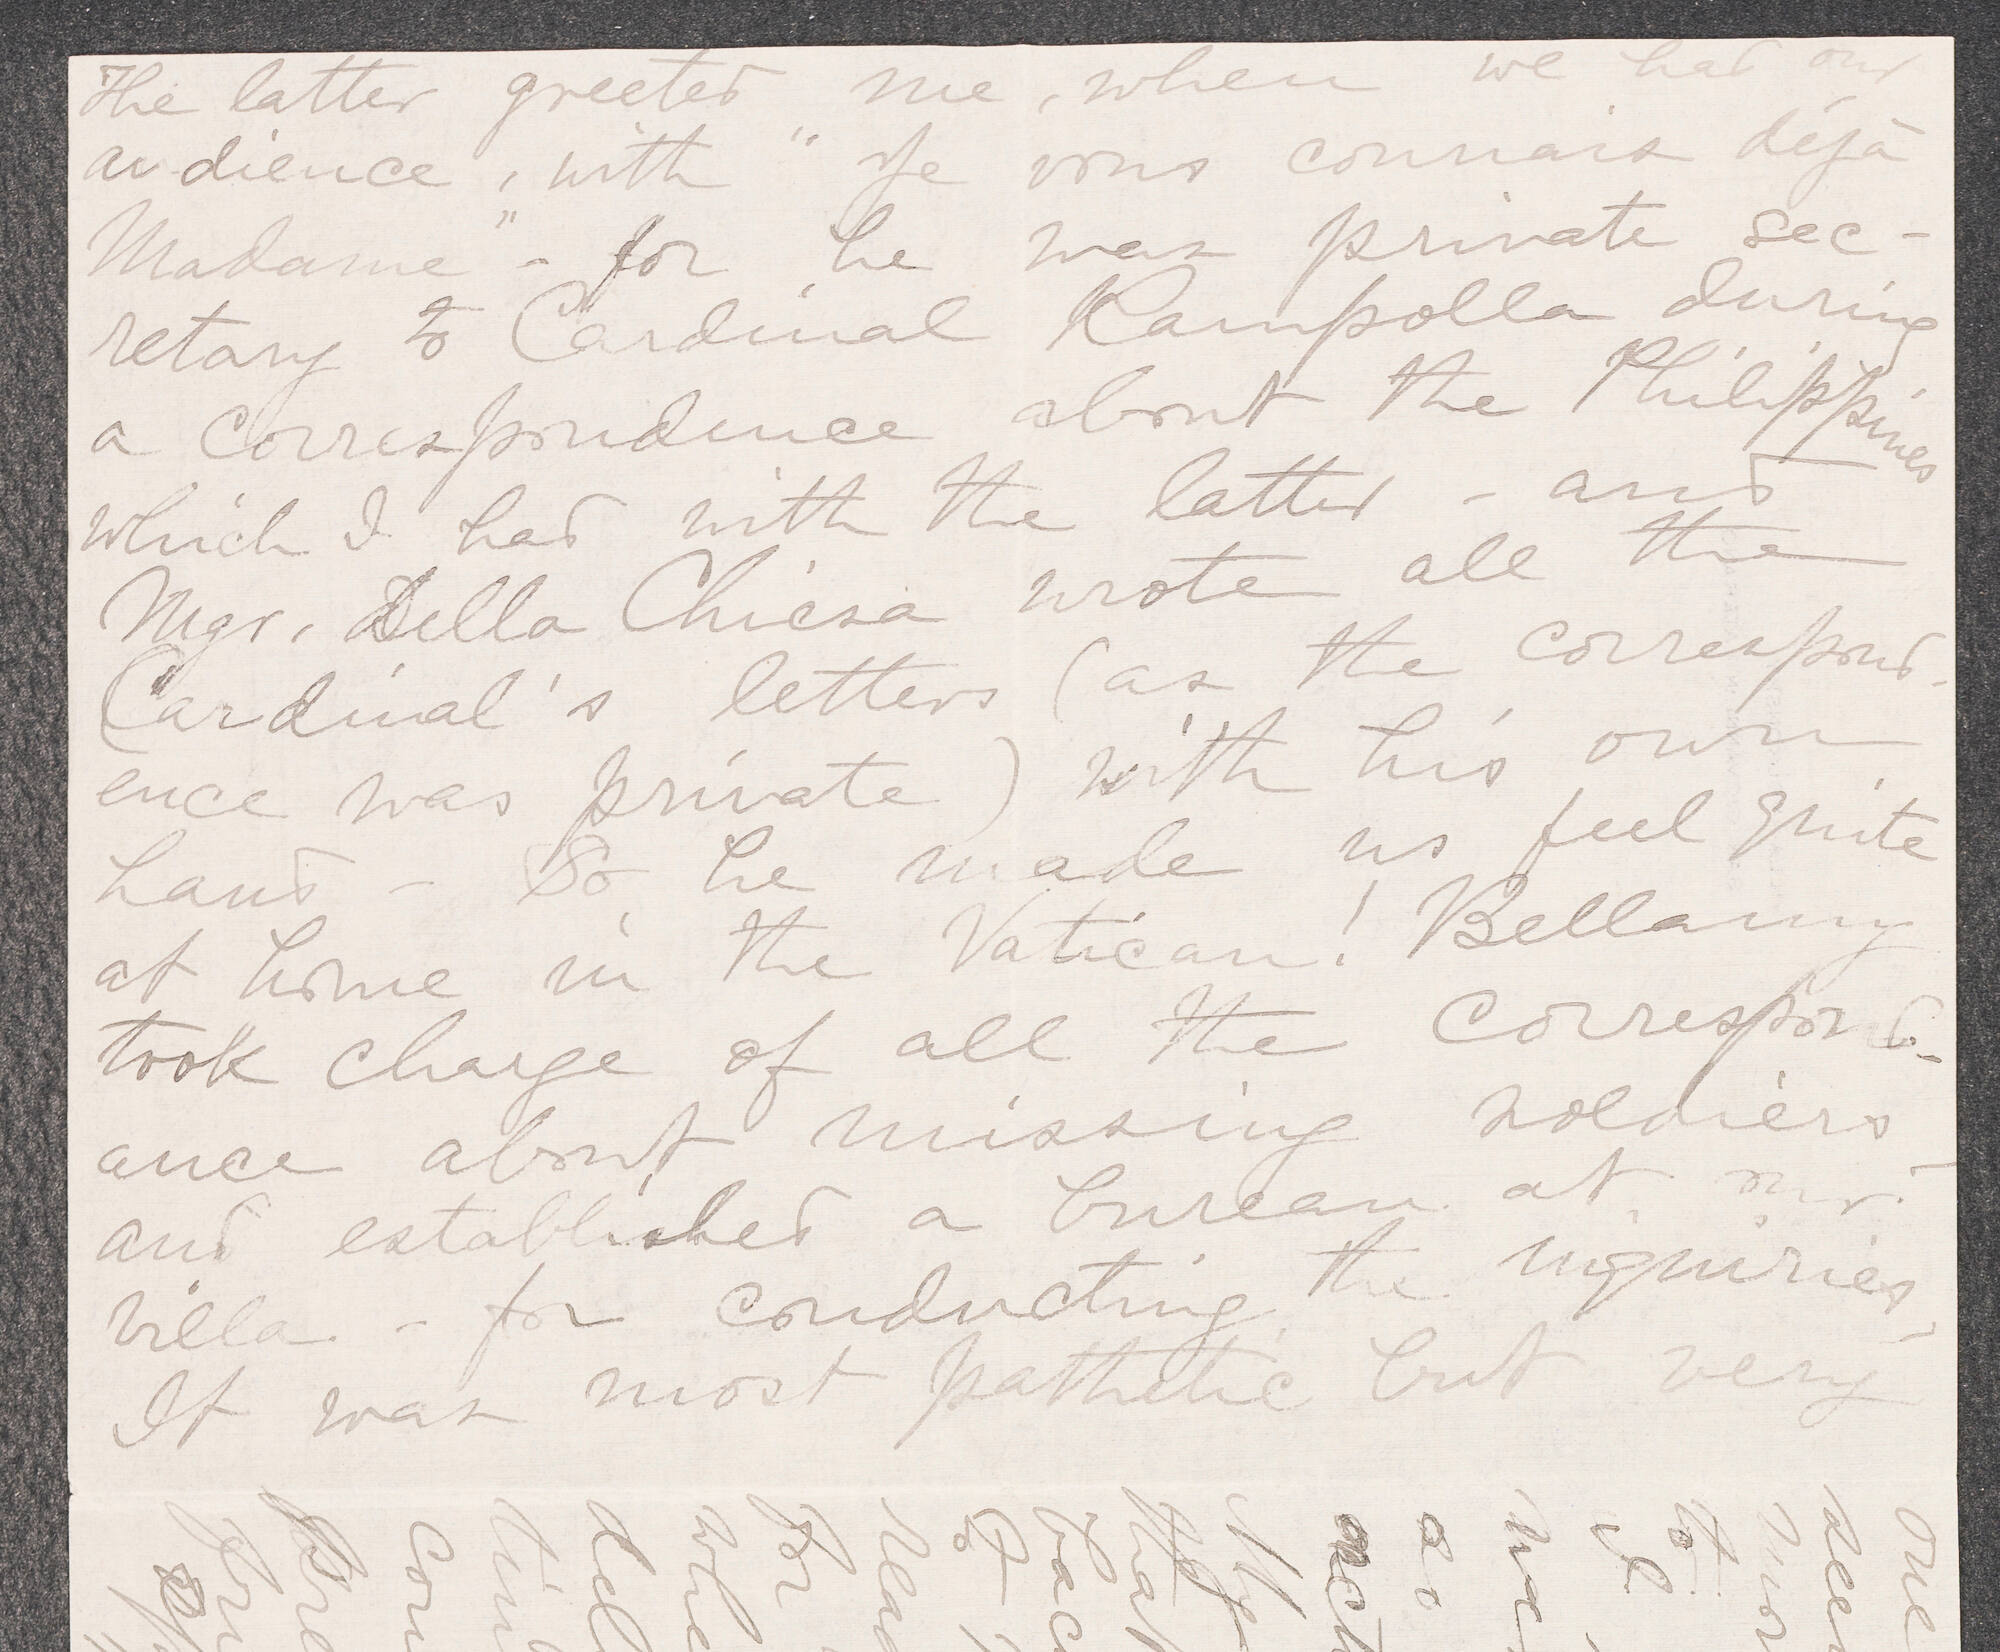 The latter greeted me, when we had our
audience, with "Je vous connais déjà
Madame" - for he was private sec-
retary to Cardinal Rampolla during
a correspondence about the Philippines
which I had with the latter - and
Mgr. Della Chiesa wrote all the
Cardinal's letters (as the correspond-
ence was private) with his own
hand - So he made us feel quite
at home in the Vatican! Bellamy
took charge of all the correspond-
ance about missing soldiers
and established a bureau at our
villa - for conducting the inquiries.
It was most pathetic but very